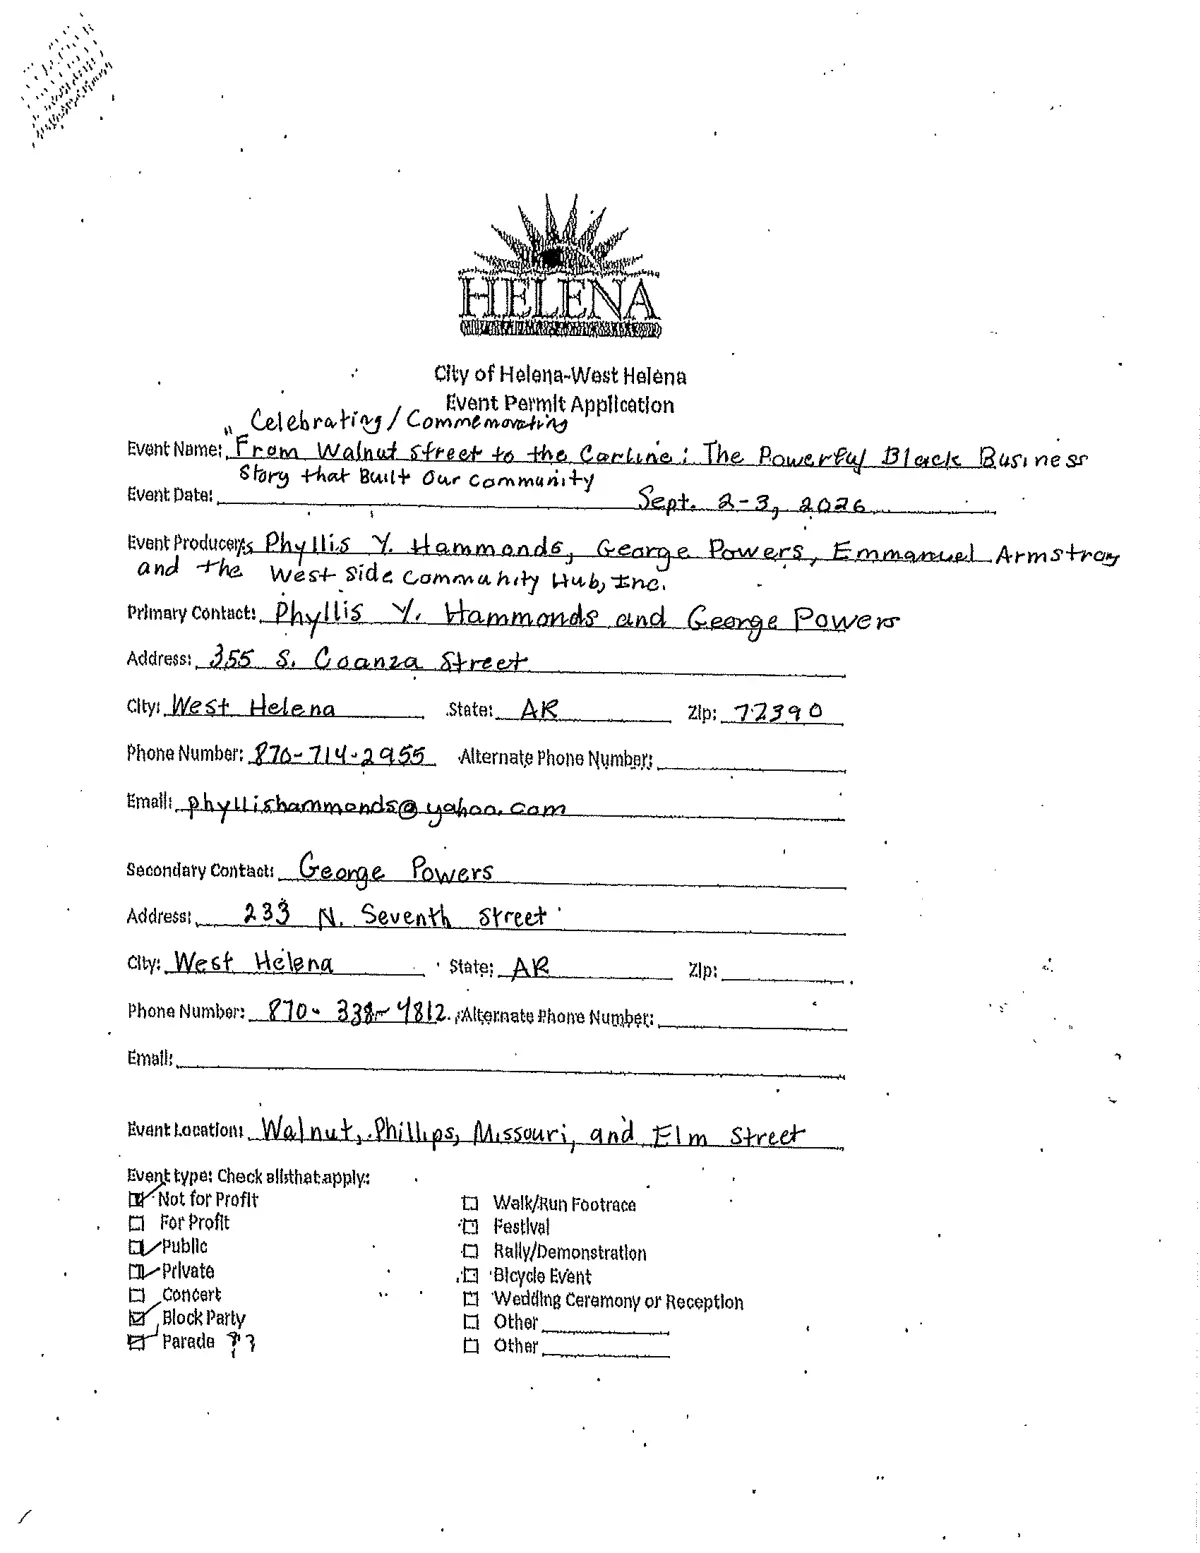 HELENA
City of Helena-West Helena
Event Permit Application
" Celebrating / Commemorating
Event Name: From Walnut Street to the Carline: The Powerful Black Business
Story that Built Our Community
Event Date: Sept. 2-3, 2026
Event Producer/s Phyllis Y. Hammonds, George Powers, Emmanuel Armstrong
and the West Side Community Hub, Inc.
Primary Contact: Phyllis Y. Hammonds and George Powers
Address: 355 S. Coanza Street
City: West Helena State: AR Zip: 72390
Phone Number: 870-714-2955 Alternate Phone Number:
Email: phyllishammonds@yahoo.com
Secondary Contact: George Powers
Address: 233 N. Seventh Street
City: West Helena State: AR Zip:
Phone Number: 870-338-4812 Alternate Phone Number:
Email:
Event Location: Walnut, Phillips, Missouri, and Elm Street
Event type: Check all that apply:
Not for Profit
For Profit
Public
Private
Concert
Block Party
Parade ??
Walk/Run Footrace
Festival
Rally/Demonstration
Bicycle Event
Wedding Ceremony or Reception
Other
Other